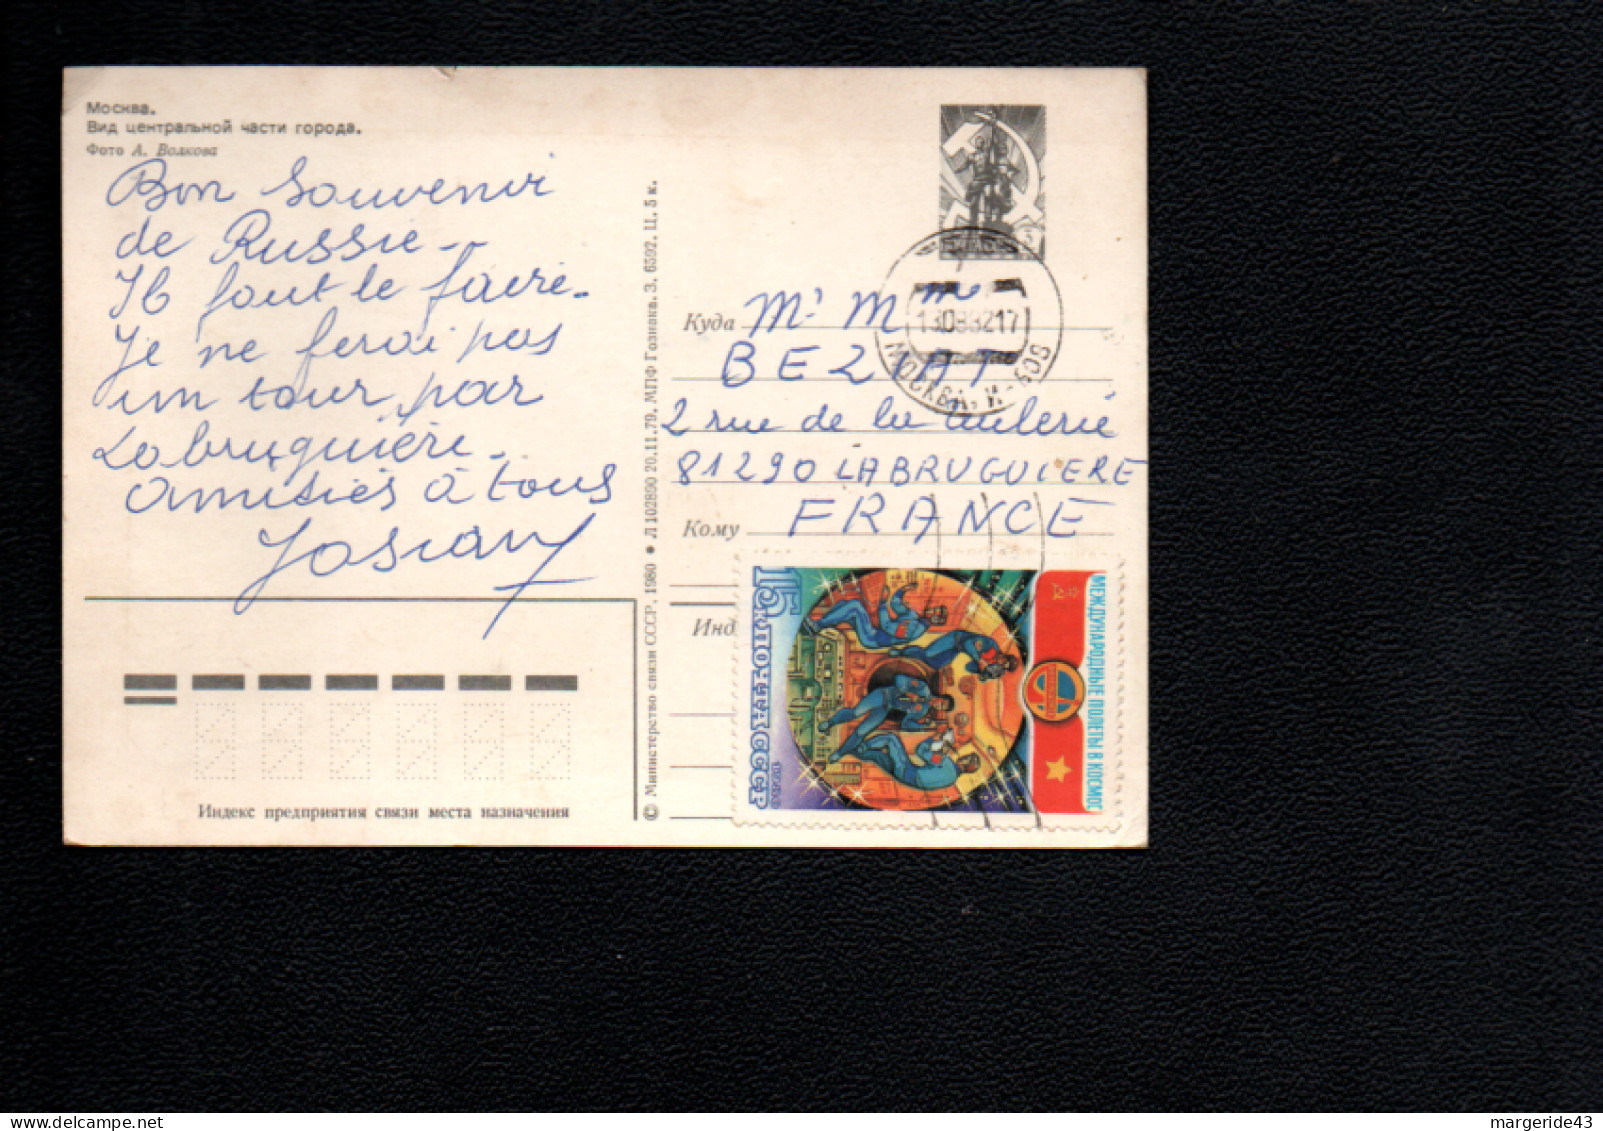 Москва.
Вид центральной части города.
Фото А. Волкова
Bon Souvenir
de Russie -
Il faut le faire -
Je ne ferai pas
un tour par
Labruguière -
Amitiés à tous
© Министерство связи СССР, 1980 ● Л 102890 20.11.79. МПФ Гознака. З. 6592. Ц. 5 к.
Индекс предприятия связи места назначения
3
13088217
МОСКВА, И-509
Куда Mr Mme
BEZIAT
2 rue de la Tuilerie
81290 LABRUGUIERE
Кому FRANCE
Инд
15К ПОЧТА СССР
1980
МЕЖДУНАРОДНЫЕ ПОЛЕТЫ В КОСМОС
margeride43